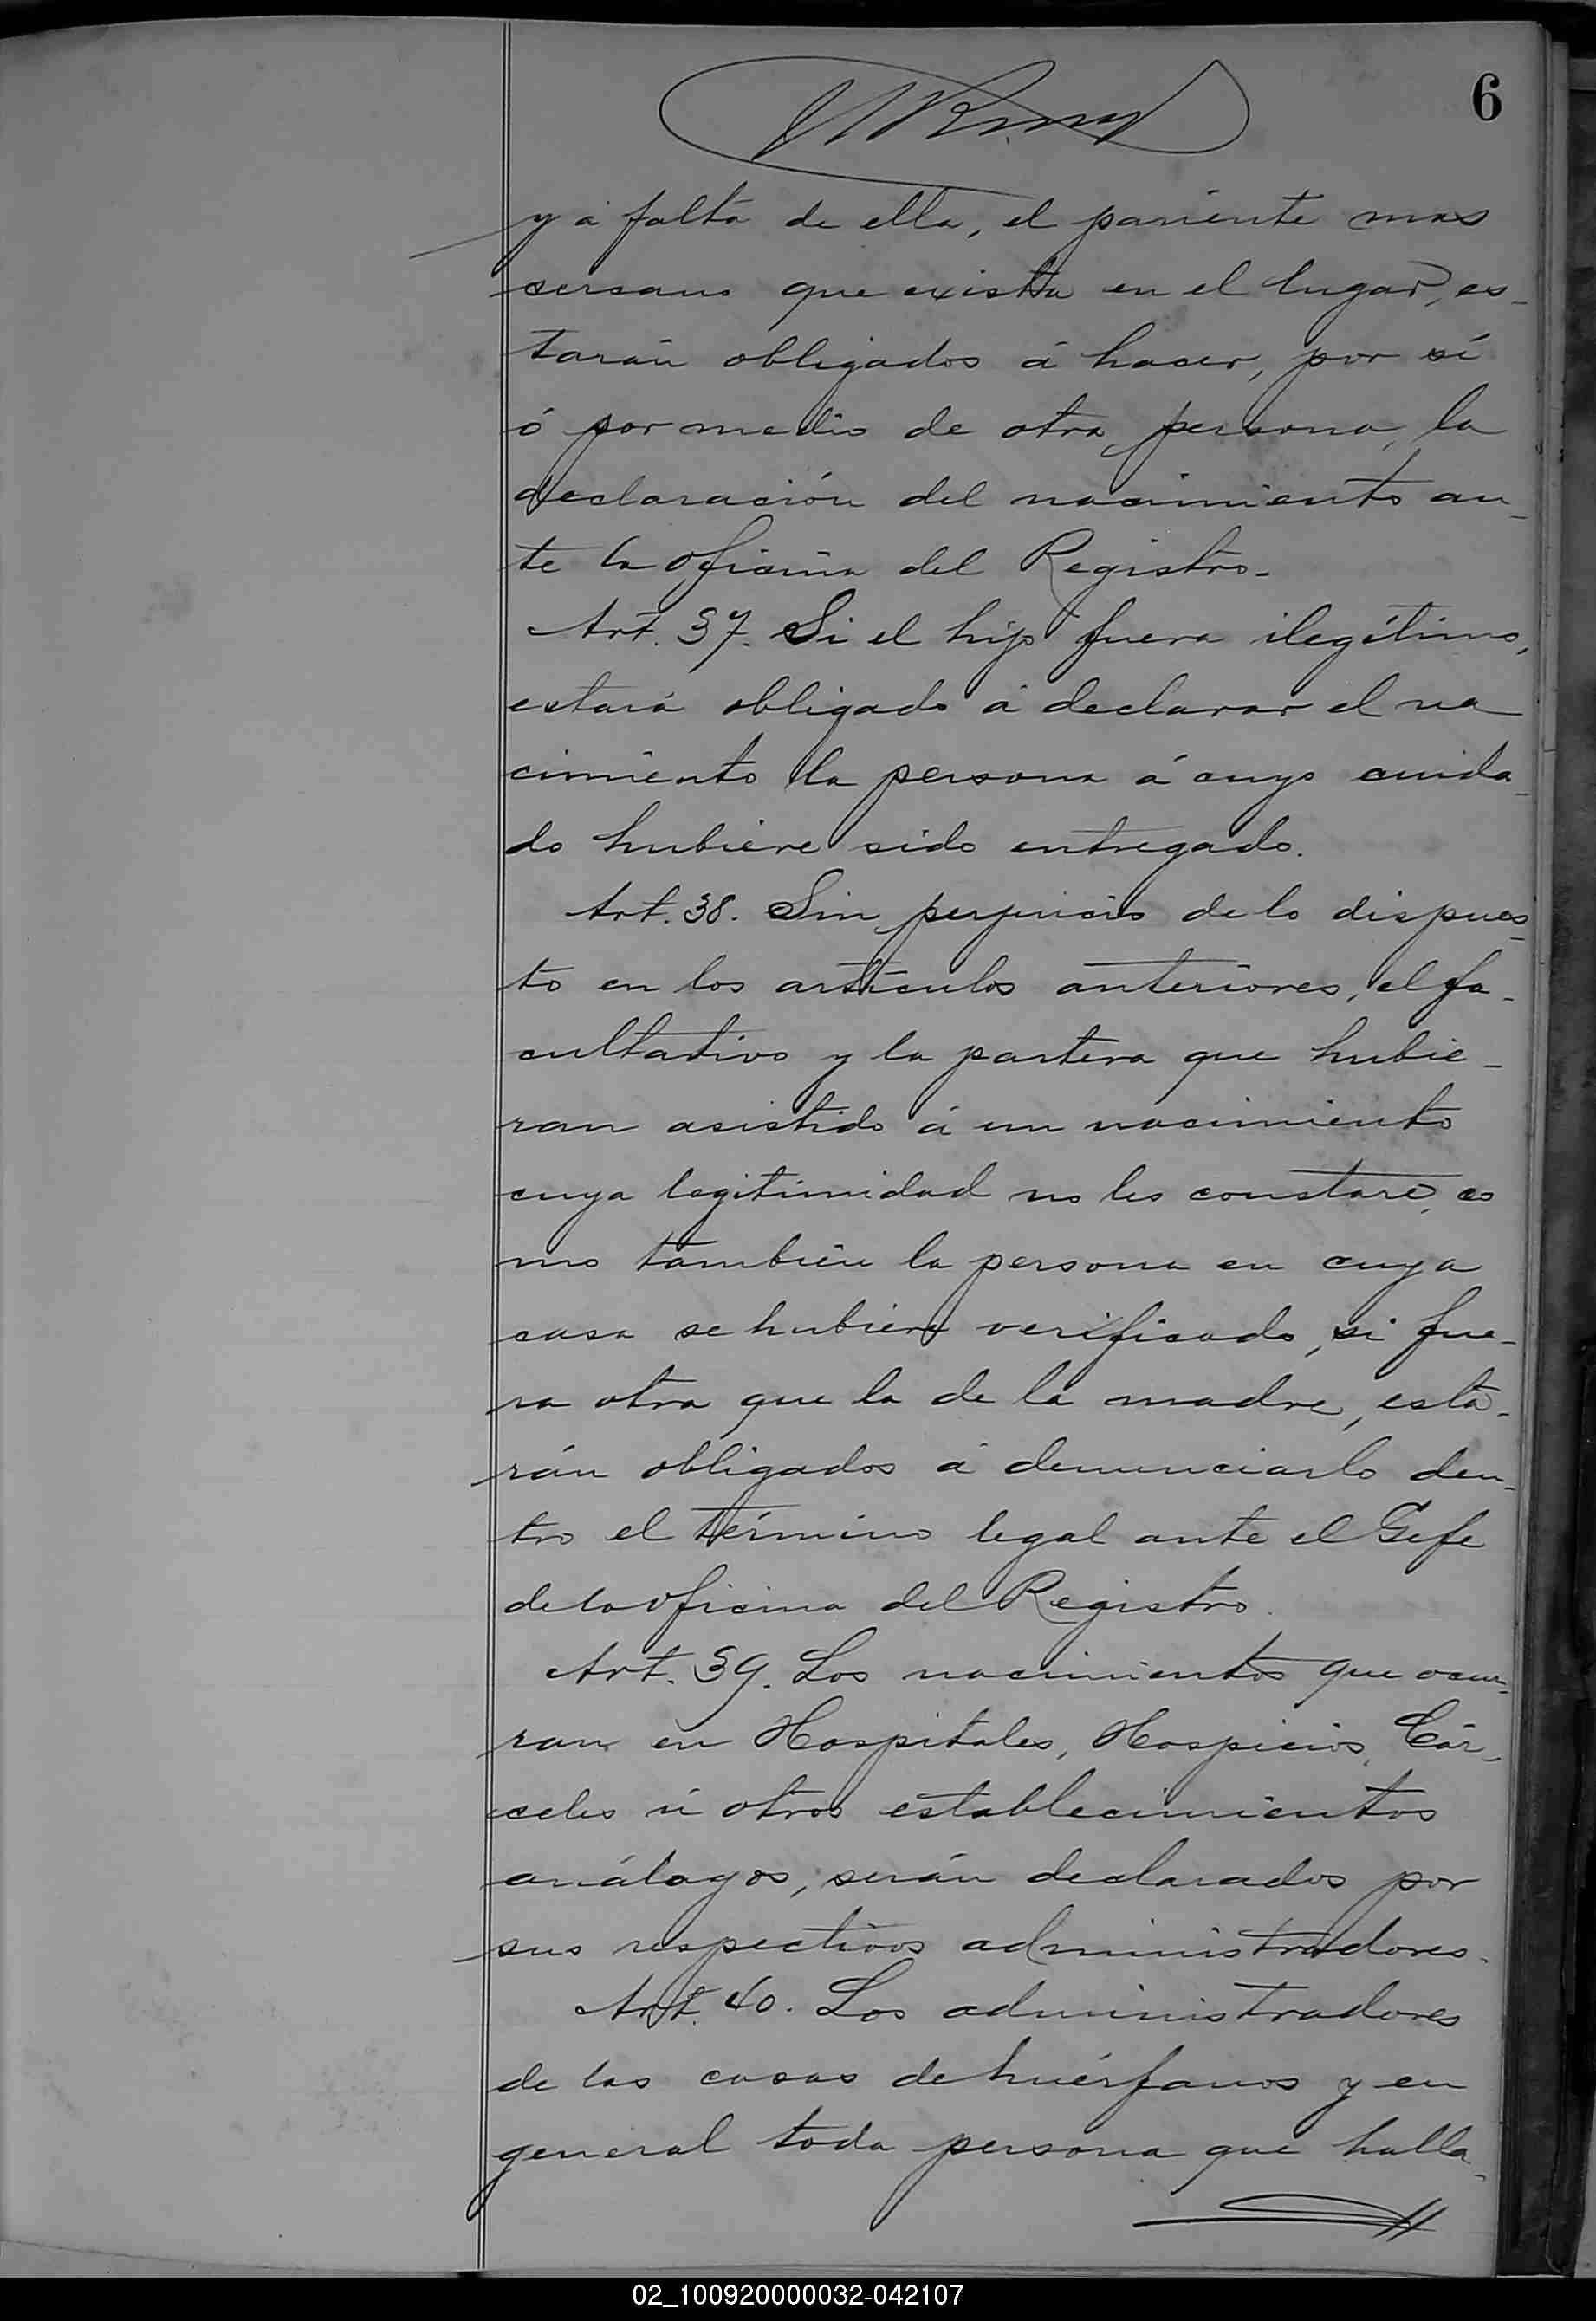 6
y á falta de ella, el pariente mas
sersano que exista en el lugar, es-
tarán obligados á haser, por sí
ó por medio de otra persona, la
declaración del nacimiento an-
te la oficina del Registro-
Art. 37. Si el hijo fuera ilegítimo,
estará obligado á declarar el na
cimiento la persona á cuyo cuida-
do hubiere sido entregado.
Art. 38. Sin perjuicio de lo dispues-
to en los artículos anteriores, el fa-
cultativo y la partera que hubie-
ran asistido á un nacimiento
cuya legitimidad no les constare, co
mo también la persona en cuya
casa se hubiere verificado, si fue-
ra otra que la de la madre, esta-
rán obligados á denunciarlo den-
tro el término legal ante el Gefe
de la oficina del Registro.
Art. 39. Los nacimientos que ocur-
ran en Hospitales, Hospicios, Cár-
celes ú otros establecimientos
análogos, serán declarados por
sus respectivos administradores.
Art. 40. Los administradores
de las casas de huérfanos y en
general toda persona que halla-
02_100920000032-042107